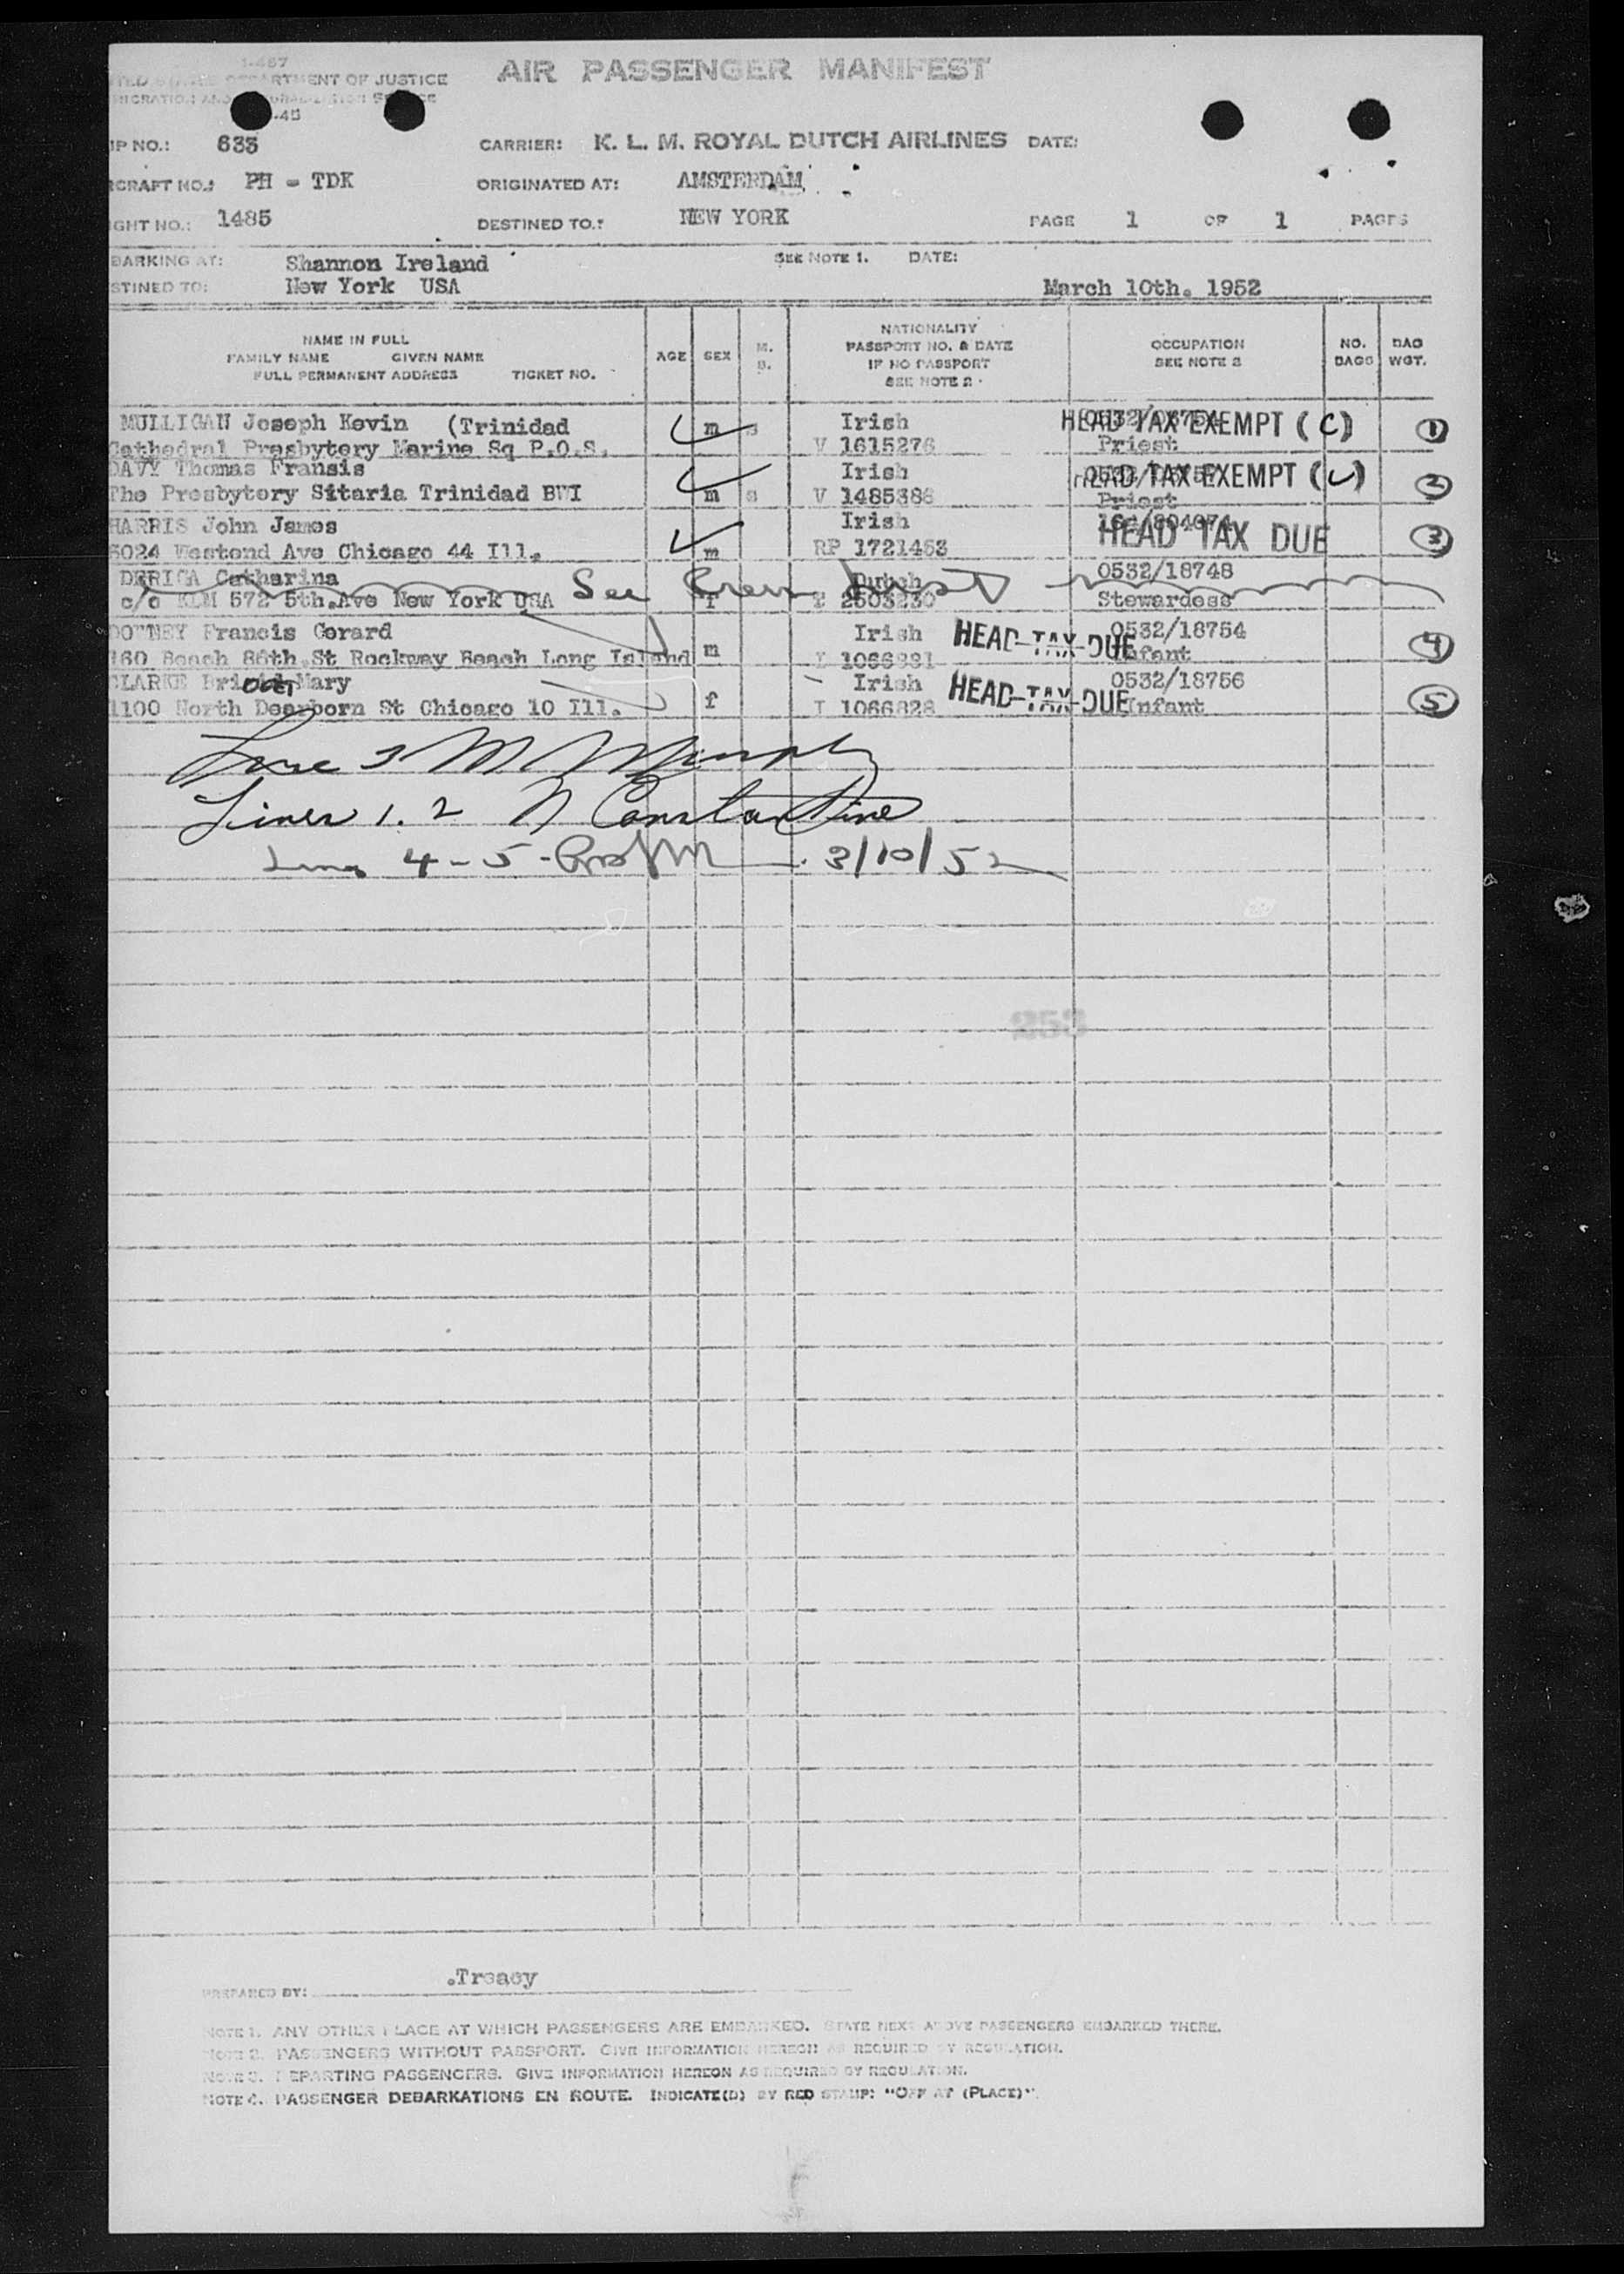 I-467
DEPARTMENT OF JUSTICE
AIR PASSENGER MANIFEST
-45
IP NO.: 633 CARRIER: K. L. M. ROYAL DUTCH AIRLINES DATE:
RCRAFT NO.: PH - TDK ORIGINATED AT: AMSTERDAM
IGHT NO.: 1485 DESTINED TO.: NEW YORK PAGE 1 OF 1 PAGES
BARKING AT: Shannon Ireland SEE NOTE 1. DATE:
STINED TO: New York USA March 10th. 1952
NAME IN FULL
FAMILY NAME GIVEN NAME
FULL PERMANENT ADDRESS TICKET NO.
AGE SEX M. S.
NATIONALITY
PASSPORT NO. & DATE
IF NO PASSPORT
SEE NOTE 2
OCCUPATION
SEE NOTE 3
NO. BAGS
BAG WGT.
MULLIGAN Joseph Kevin (Trinidad m s Irish HEAD TAX EXEMPT (C) 1
Cathedral Presbytery Marine Sq P.O.S. V 1615276 Priest
DAVY Thomas Fransis Irish HEAD TAX EXEMPT (C) 2
The Presbytery Sitaria Trinidad BWI m s V 1485386 Priest
HARRIS John James Irish HEAD TAX DUE 3
5024 Westend Ave Chicago 44 Ill. m RP 1721453
DERIGA Catharina See Crew Dutch 0532/18748
c/o KLM 572 5th.Ave New York USA f 2503230 Stewardess
DOWNEY Francis Gerard m Irish HEAD TAX DUE 0532/18754 4
160 Beach 86th.St Rockway Beach Long Island 1066881 Infant
CLARKE Mary Irish HEAD TAX DUE 0532/18756 5
1100 North Dearborn St Chicago 10 Ill. f I 1066828 Infant
Line 3 M Murphy
Lines 1. 2 N Constantine
Lines 4 - 5 - 3/10/52
253
PREPARED BY: .Treacy
NOTE 1. ANY OTHER PLACE AT WHICH PASSENGERS ARE EMBARKED. STATE NEXT ABOVE PASSENGERS EMBARKED THERE.
NOTE 2. PASSENGERS WITHOUT PASSPORT. GIVE INFORMATION HEREON AS REQUIRED BY REGULATION.
NOTE 3. DEPARTING PASSENGERS. GIVE INFORMATION HEREON AS REQUIRED BY REGULATION.
NOTE 4. PASSENGER DEBARKATIONS EN ROUTE. INDICATE(D) BY RED STAMP: "OFF AT (PLACE)".